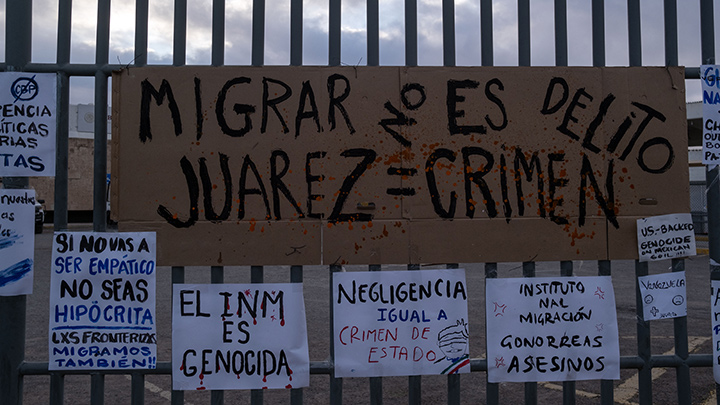 MIGRAR NO ES DELITO
JUAREZ = CRIMEN
CBP
PENCIA
LÍTICAS
RIAS
TAS
SI NO VAS A
SER EMPÁTICO
NO SEAS
HIPÓCRITA
LXS FRONTERIZXS
MIGRAMOS
TAMBIÉN!!
EL INM
ES
GENOCIDA
NEGLIGENCIA
IGUAL A
CRIMEN DE
ESTADO
INSTITUTO
NAL
MIGRACIÓN
GONORREAS
ASESINOS
US-BACKED
GENOCIDE
ON MEXICAN
SOIL
VENEZUELA